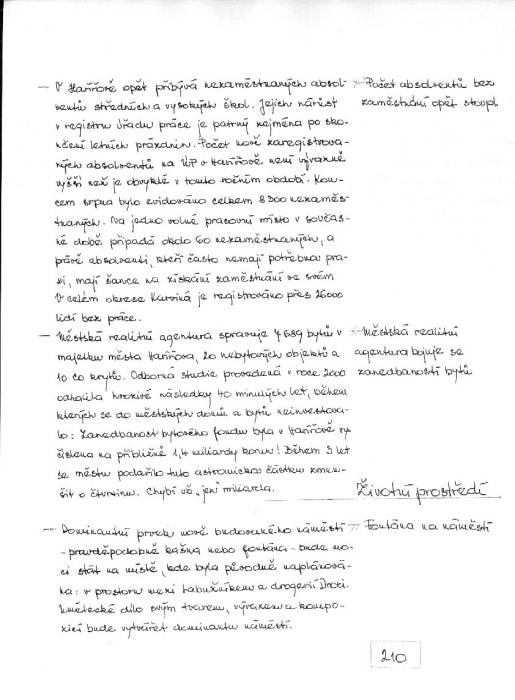 – V Havířově opět přibývá nezaměstnaných absol-
ventů středních a vysokých škol. Jejich nárůst
v registru Úřadu práce je patrný zejména po sko-
nčení letních prázdnin. Počet nově zaregistrova-
ných absolventů na ÚP v Havířově není výrazně
vyšší než je obvyklé v tomto ročním období. Kon-
cem srpna bylo evidováno celkem 8 200 nezaměs-
tnaných. Na jedno volné pracovní místo v součas-
né době připadá okolo 60 nezaměstnaných, a
právě absolventi, kteří často nemají potřebnou pra-
xi, mají šance na získání zaměstnání ve svém
V celém okrese Karviná je registrováno přes 26000
lidí bez práce.
* Počet absolventů bez
zaměstnání opět stoupl
– Městská realitní agentura spravuje 7 689 bytů v
majetku města Havířova, 20 nebytových objektů a
10 čo krytů. Odborná studie provedená v roce 2000
odhalila hrozivé následky 40 minulých let, během
kterých se do městských domů a bytů neinvestova-
lo: Zanedbanost bytového fondu byla v Havířově vy-
číslena na přibližně 1,4 miliardy korun! Během 3 let
se městu podařilo tuto astronomickou částku zmen-
šit o čtvrtinu. Chybí už „jen" miliarda.
* Městská realitní
agentura bojuje se
zanedbaností bytů
Životní prostředí
– Dominantní prvek nově budovaného náměstí
- pravděpodobně kašna nebo fontána - bude mo-
ci stát na místě, kde byla původně naplánová-
na: v prostoru mezi Labužníkem a drogerií Droxi.
Umělecké dílo svým tvarem, výrazem a kompo-
zicí bude vytvářet dominantu náměstí.
* Fontána na náměstí
210